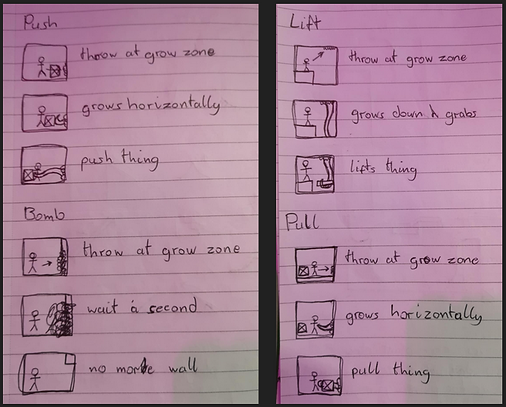 Push
throw at grow zone
grows horizontally
push thing
Bomb
throw at grow zone
wait a second
no more wall
Lift
throw at grow zone
grows down & grabs
lifts thing
Pull
throw at grow zone
grows horizontally
pull thing